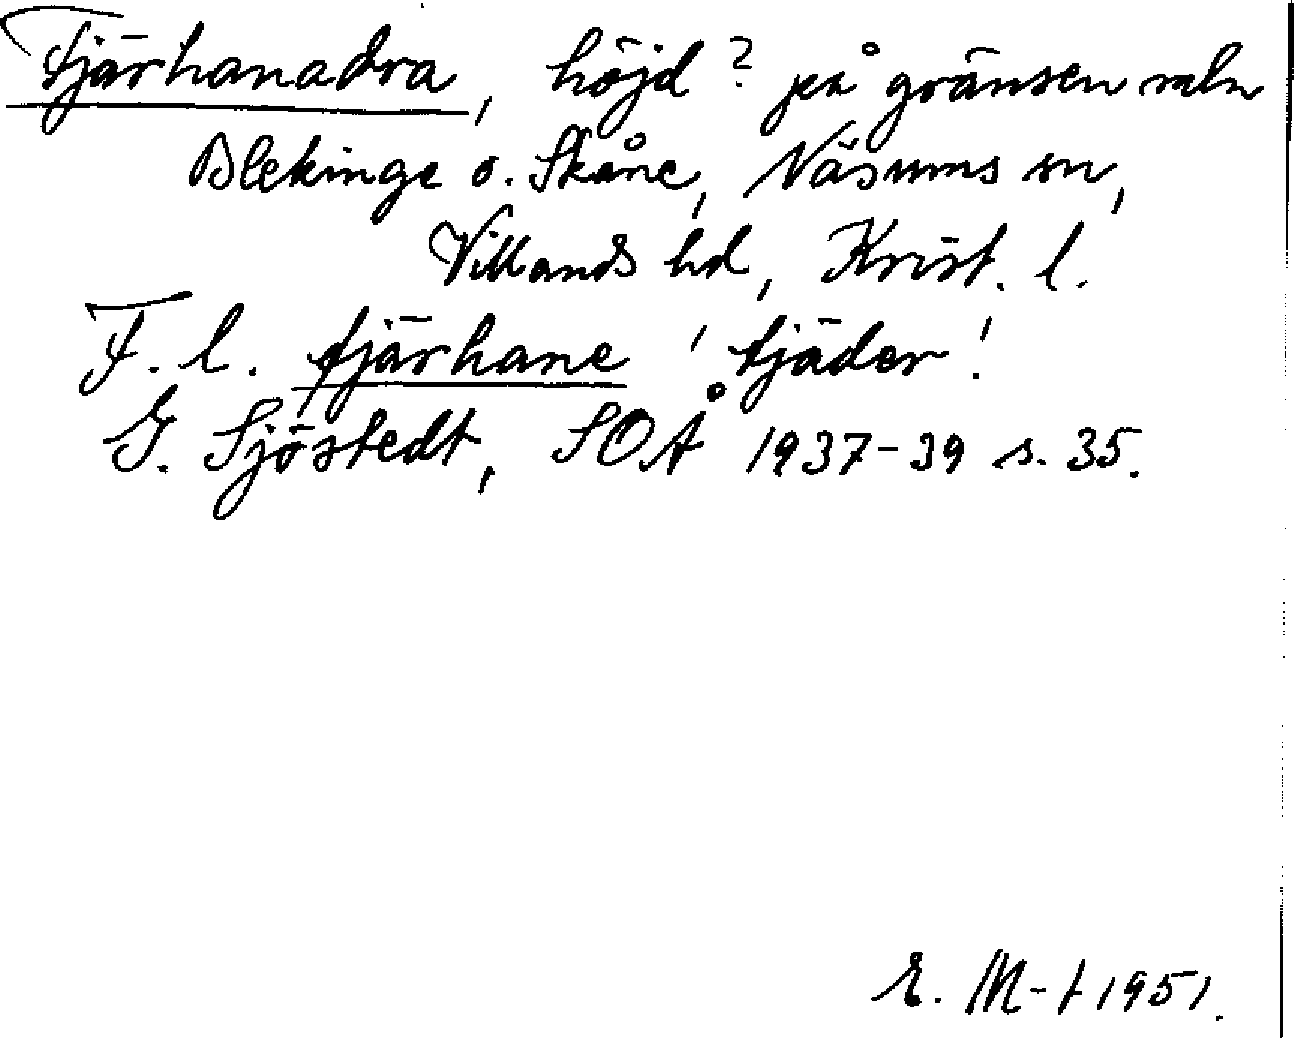 Tjärhanadra, höjd? på gränsen mln
Blekinge o. Skåne, Näsums sn,
Villands hd, Krist. l.
F. l. tjärhane 'tjäder'.
G. Sjöstedt, SOÅ 1937-39 s. 35.
E. M-t 1951.